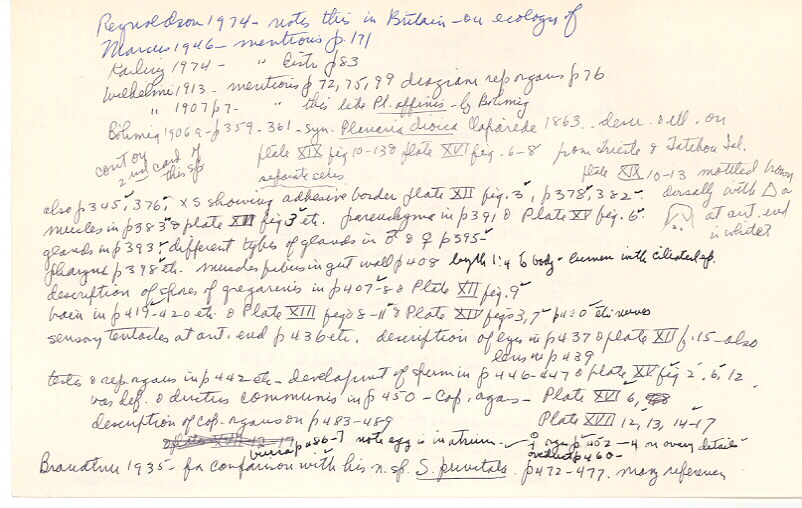 Reynoldson 1974 - notes this in Britain - on ecology of
Marcus 1946 - mentions p. 171
Karling 1974 - " distr p 83
Wilhelmi 1913 - mentions p 72, 75, 99 diagram rep organs p 76
" 1907 p 7 - " this like Pl. affinis - by Böhmig
Böhmig 1906a - p 359 - 361 - syn. Planaria dioica Claparède 1863 .. descr. & ill. on
plate XIX fig 10-13 & plate XVI fig. 6-8 from Trieste & Tatihou Isl.
cont on 2nd card of this sp
separate series
plate XIX 10-13 mottled brown
dorsally with Δ
at ant. end
is whiter
also p 345, 376, XS showing adhesive border plate XII fig. 3, p 378, 382
muscles in p 383 & plate XII fig 3 etc. parenchyma in p 391 & Plate XV fig. 6
glands in p 393, different types of glands in ♂ & ♀ p 395
pharynx p 398 etc. muscles fibers in gut wall p 408 length 1:4 to body - lumen with ciliated ep.
description of spores of gregarines in p 407-8 & Plate XII fig. 9
brain in p 419-420 etc. & Plate XIII figs 8-11 & Plate XIV figs 3, 7 p 420 etc nerves
sensory tentacles at ant. end p 436 etc. description of eyes in p 437 & plate XII f. 15 - also
lens in p 439
testes & rep. organs in p 442 etc - development of sperm in p 446-447 & plate XV fig 2, 6, 12
vas def. & ductus communis in p 450 - cop. organs - Plate XVI 6,
description of cop. organs on p 483-489 Plate XVII 12, 13, 14-17
bursa p 486-7 note egg is in atrium - ♀ orgs p 452 - 4 on ovary details
oviduct p 460 -
Brandtner 1935 - for comparison with his n. sp. S. p 472-477. many references